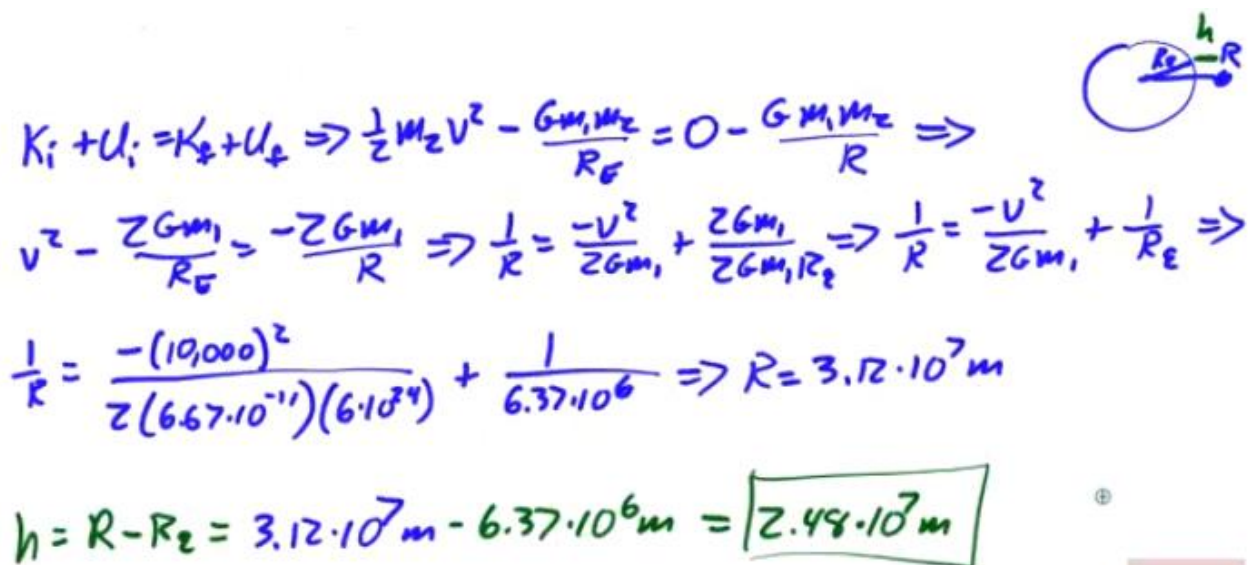 h
R_E R
K_i + U_i = K_f + U_f => 1/2 m_2 v² - Gm_1m_2/R_E = 0 - Gm_1m_2/R =>
v² - 2Gm_1/R_E = -2Gm_1/R => 1/R = -v²/2Gm_1 + 2Gm_1/2Gm_1R_E => 1/R = -v²/2Gm_1 + 1/R_E =>
1/R = -(10,000)²/2(6.67·10⁻¹¹)(6·10²⁴) + 1/6.37·10⁶ => R = 3.12·10⁷ m
h = R - R_E = 3.12·10⁷ m - 6.37·10⁶ m = 2.48·10⁷ m